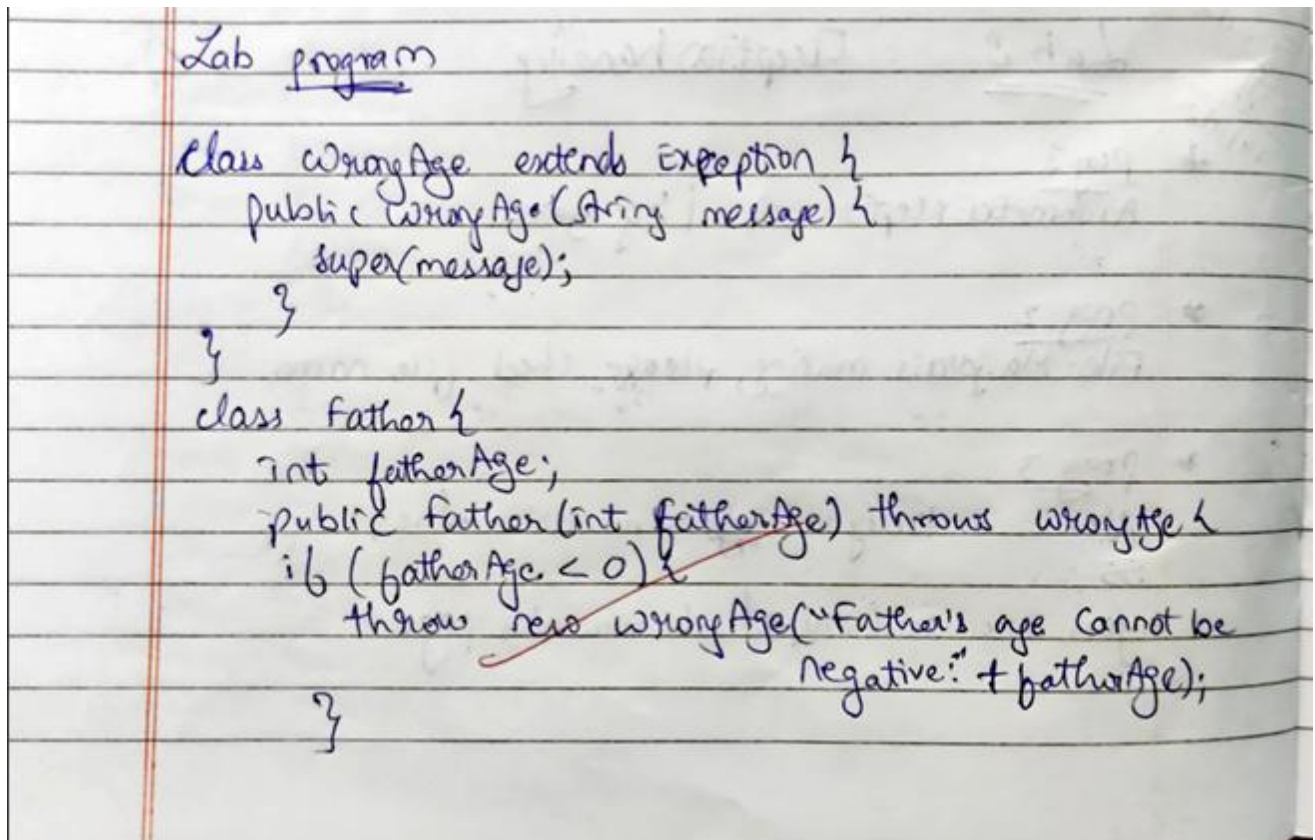 Lab program
class WrongAge extends Exception {
public WrongAge(String message) {
super(message);
}
}
class Father {
int fatherAge;
public Father(int fatherAge) throws WrongAge {
if (fatherAge < 0) {
throw new WrongAge("Father's age cannot be
negative:" + fatherAge);
}